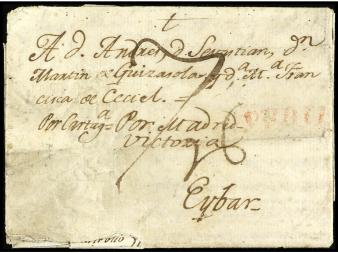 †
A d. Andres, d. Sevastian, dn
Martin de Guizasola, y da. Ma. Fran
cisca de Ceciel. =
Por Cartaga Por Madrid
Victoria
7
Eybar=